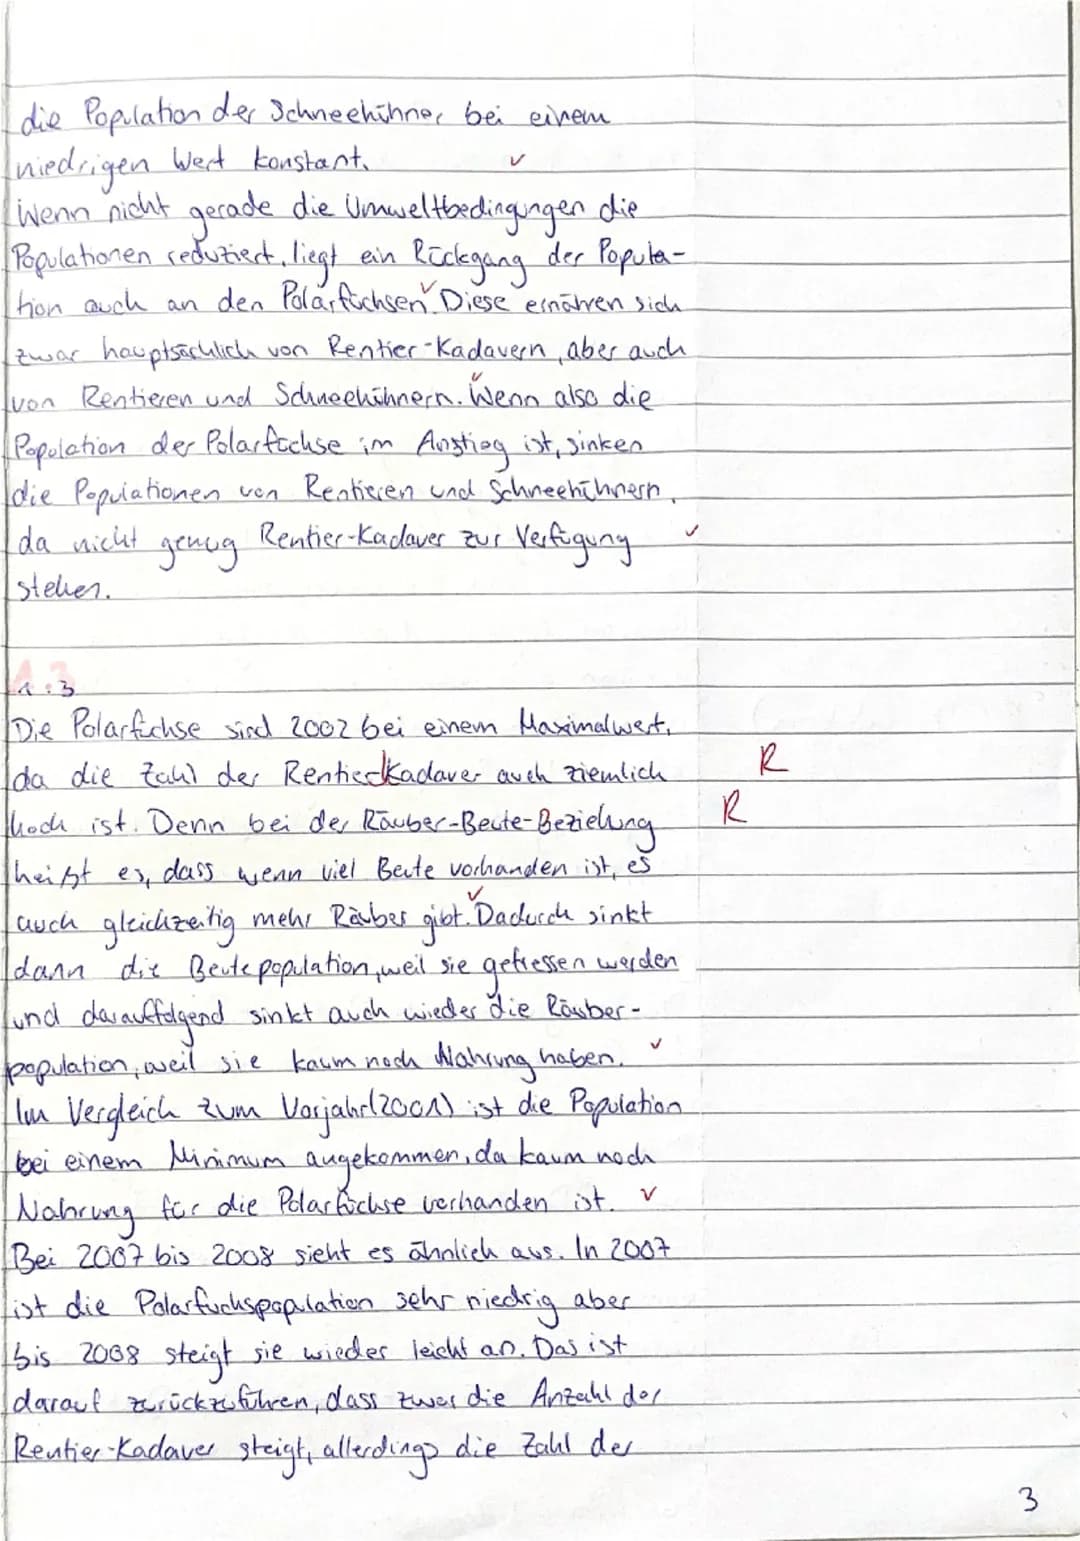 die Population der Schneehühner bei einem
niedrigen Wert konstant.
Wenn nicht gerade die Umweltbedingungen die
Populationen reduziert, liegt ein Rückgang der Popula-
tion auch an den Polarfüchsen. Diese ernähren sich
zwar hauptsächlich von Rentier-Kadavern, aber auch
von Rentieren und Schneehühnern. Wenn also die
Population der Polarfüchse im Anstieg ist, sinken
die Populationen von Rentieren und Schneehühnern,
da nicht genug Rentier-Kadaver zur Verfügung
stehen.
1.3
Die Polarfüchse sind 2002 bei einem Maximalwert,
da die Zahl der Rentierkadaver auch ziemlich
R
hoch ist. Denn bei der Räuber-Beute-Beziehung
R
heißt es, dass wenn viel Beute vorhanden ist, es
auch gleichzeitig mehr Räuber gibt. Dadurch sinkt
dann die Beutepopulation, weil sie gefressen werden
und darauffolgend sinkt auch wieder die Räuber-
population, weil sie kaum noch Nahrung haben.
Im Vergleich zum Vorjahr (2001) ist die Population
bei einem Minimum angekommen, da kaum noch
Nahrung für die Polarfüchse vorhanden ist.
Bei 2007 bis 2008 sieht es ähnlich aus. In 2007
ist die Polarfuchspopulation sehr niedrig aber
bis 2008 steigt sie wieder leicht an. Das ist
darauf zurückzuführen, dass zwar die Anzahl der
Rentier-Kadaver steigt, allerdings die Zahl der
3